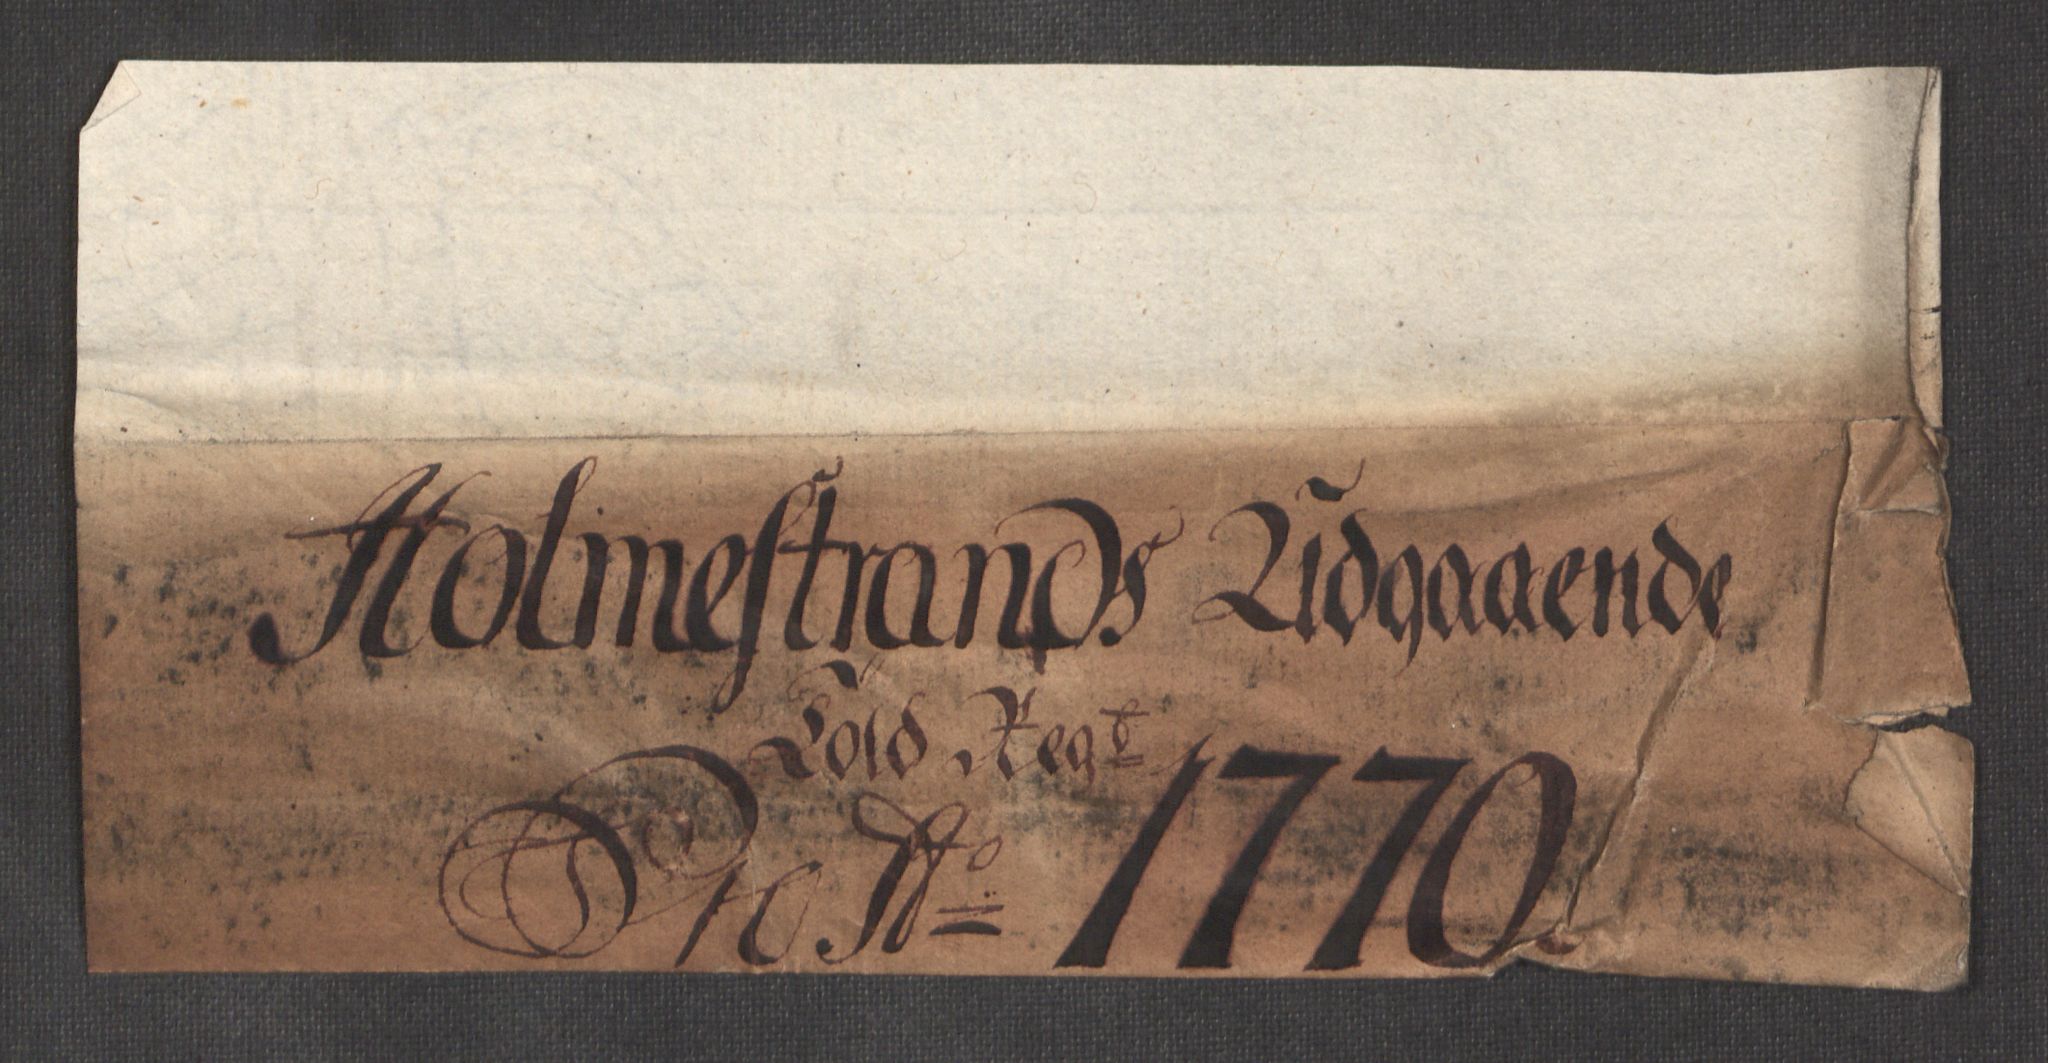 Holmestrands Udgaaende
Told Regb
Pro Ao 1770.